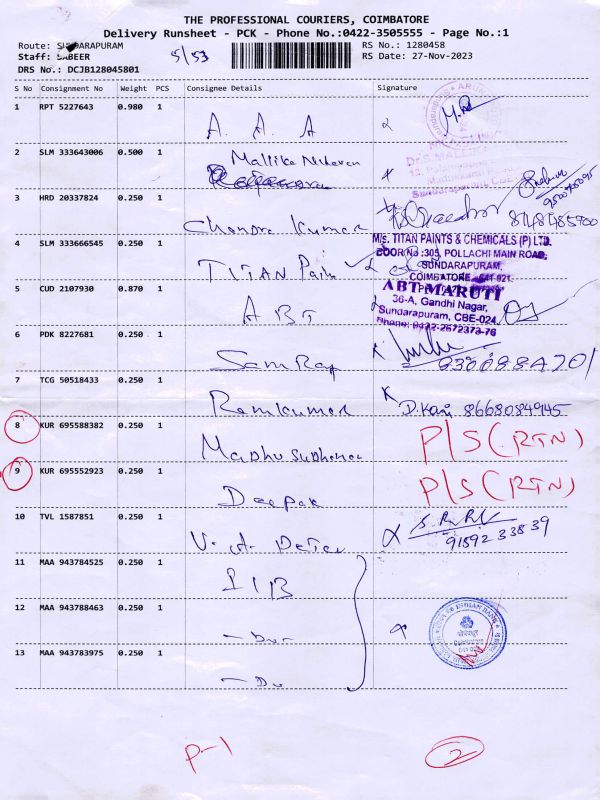 THE PROFESSIONAL COURIERS, COIMBATORE
Delivery Runsheet - PCK - Phone No.:0422-3505555 - Page No.:1
Route: SUNDARAPURAM
Staff: SABEER
DRS No.: DCJB128045801
5/53
RS No.: 1280458
RS Date: 27-Nov-2023
S No Consignment No Weight PCS Consignee Details Signature
1 RPT 5227643 0.980 1 A. A. A
2 SLM 333643006 0.500 1 Mallika
Sundarapuram, CBE
3 HRD 20337824 0.250 1 Chandra Kumar
4 SLM 333666545 0.250 1 TITAN Paint
M/s. TITAN PAINTS & CHEMICALS (P) LTD.
DOOR No :305, POLLACHI MAIN ROAD,
SUNDARAPURAM,
COIMBATORE - 641 021.
5 CUD 2107930 0.870 1 ABT
ABT MARUTI
36-A, Gandhi Nagar,
Sundarapuram, CBE-024.
Phone: 0422-2672373-76
6 PDK 8227681 0.250 1 Sam Raj
7 TCG 50518433 0.250 1 Ramkumar
8668084945
8 KUR 695588382 0.250 1 Madhu Sudhanan P/S (RTN)
9 KUR 695552923 0.250 1 Deepak P/S (RTN)
10 TVL 1587851 0.250 1 V. A. Peter
91592 33839
11 MAA 943784525 0.250 1 IIB
12 MAA 943788463 0.250 1 - Do -
INDIAN BANK
13 MAA 943783975 0.250 1 - Do
P-1
2